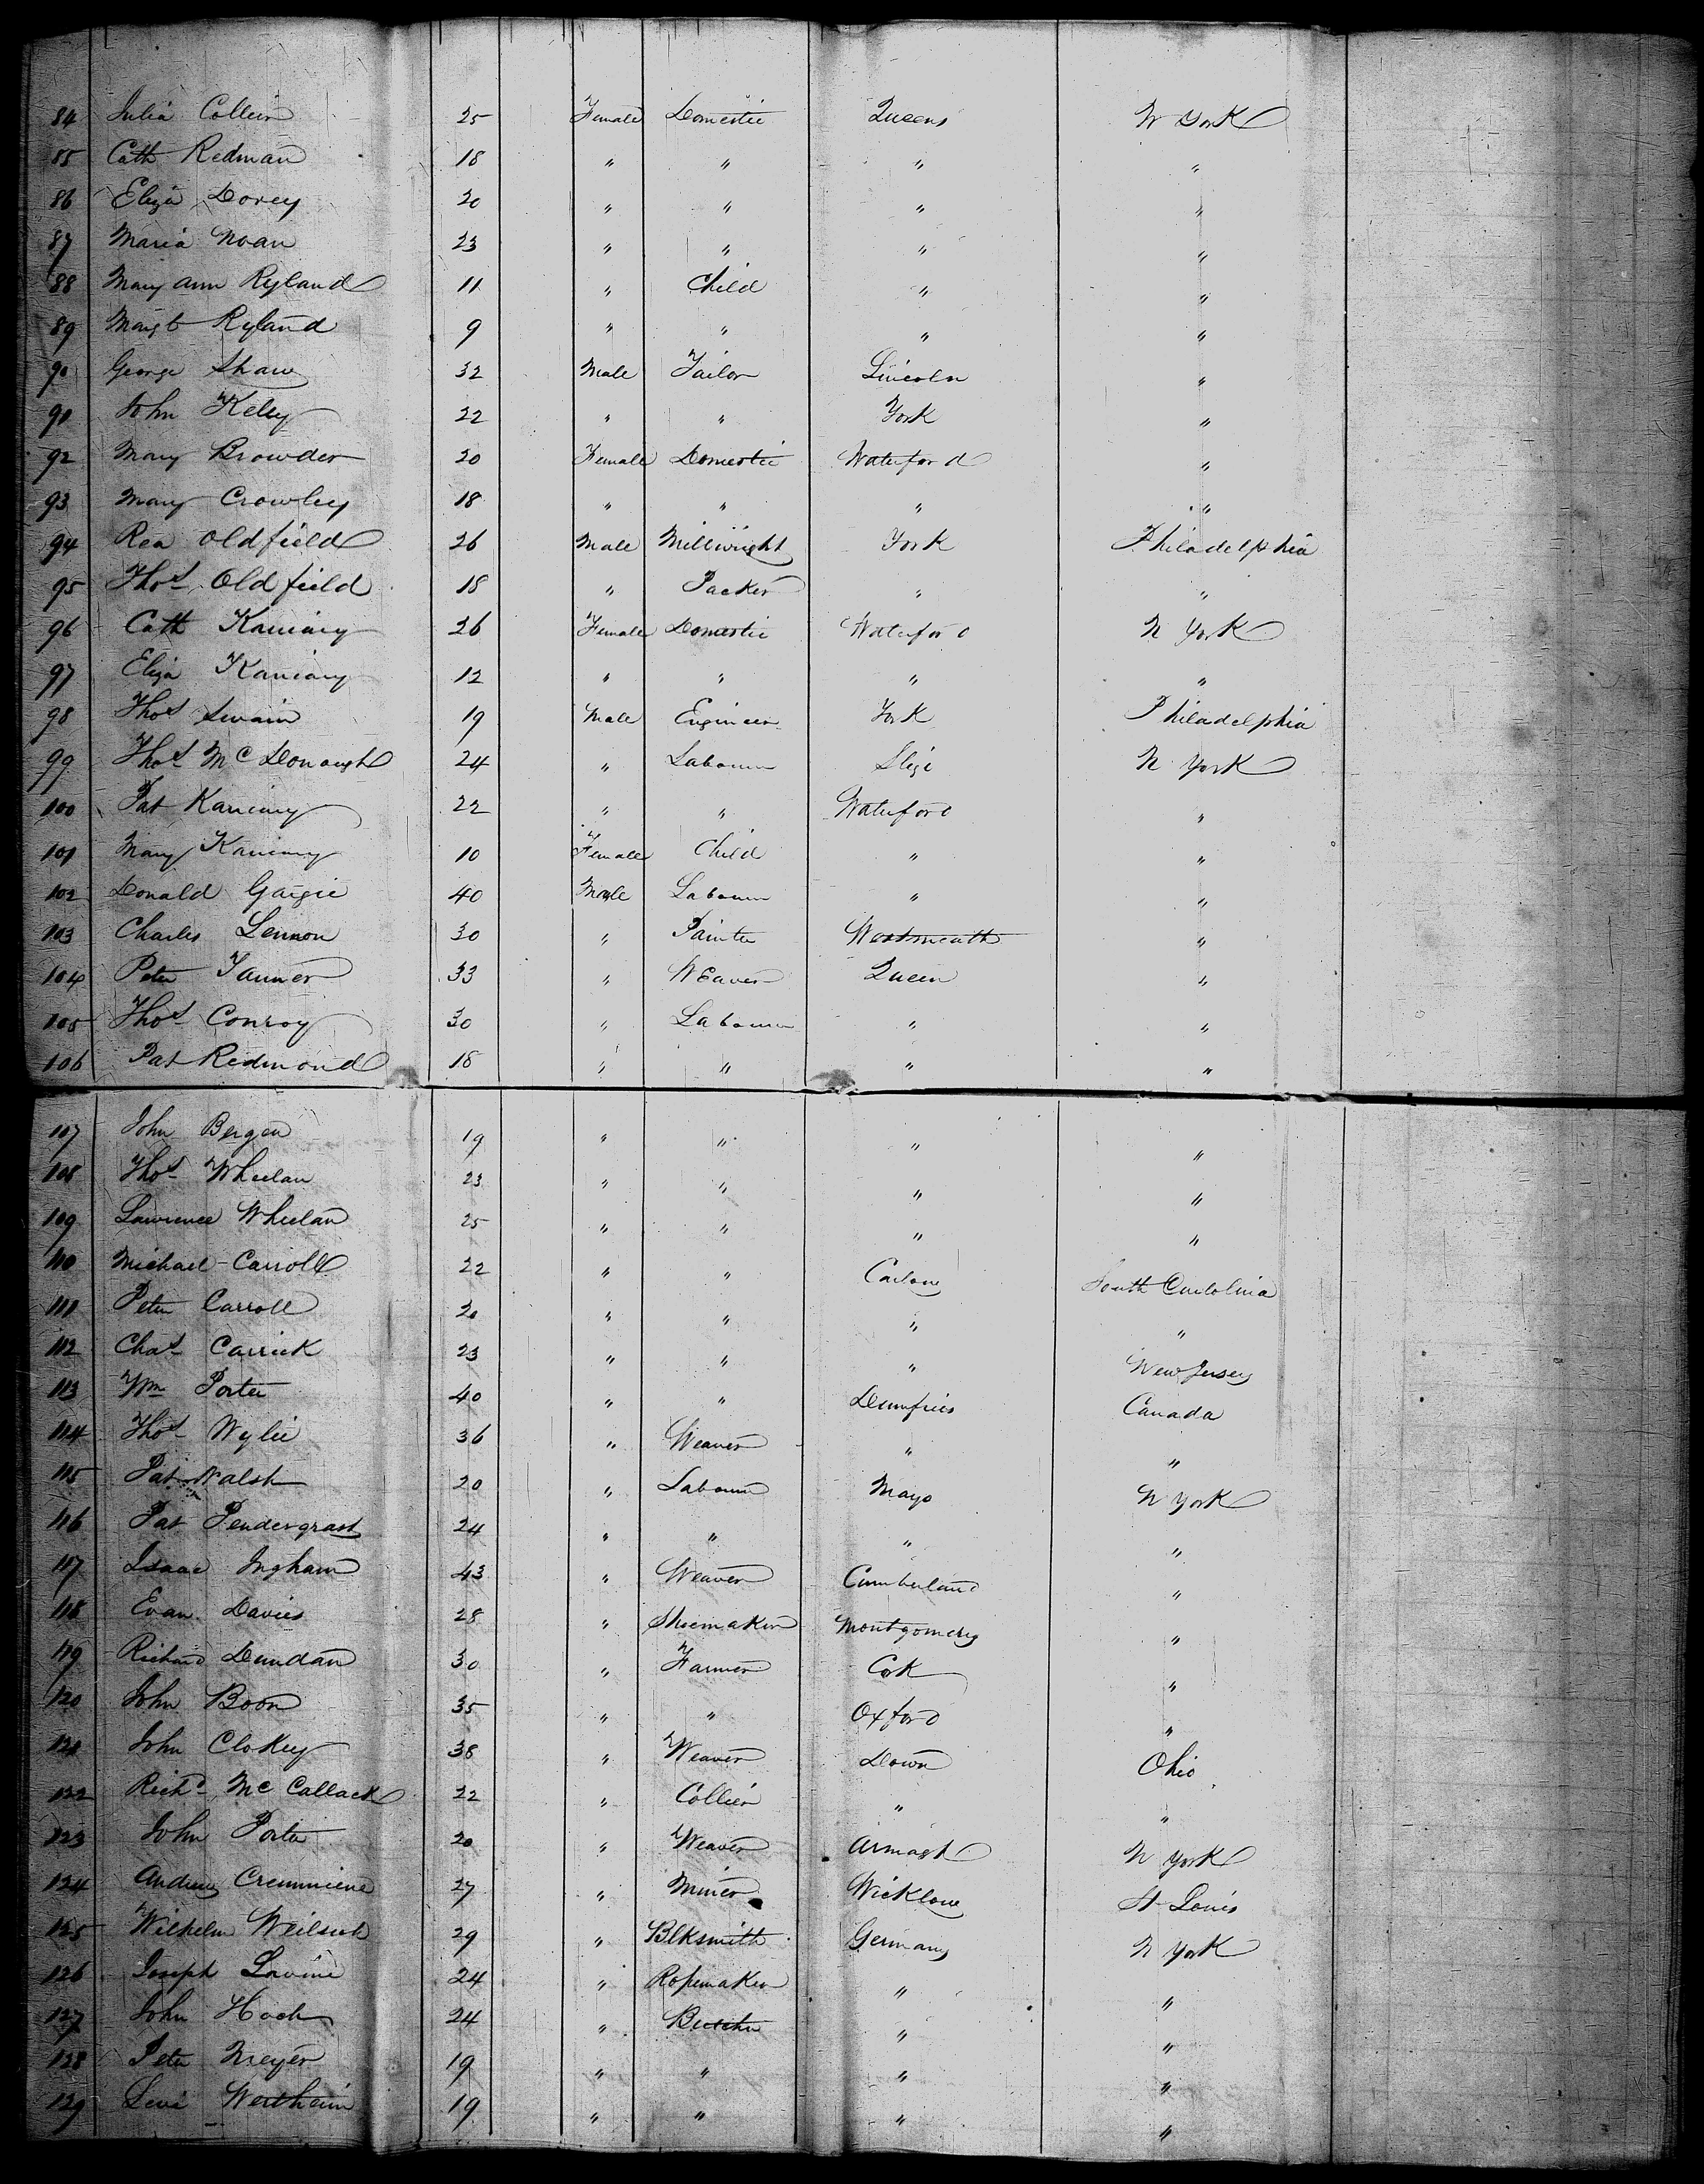 84 Julia Collier 25 Female Domestic Queens N York
85 Cath Redman 18 " " " "
86 Eliza Dorey 20 " " " "
87 Maria Noan 23 " " " "
88 Mary Ann Ryland 11 " Child " "
89 Margt Ryland 9 " " " "
90 George Shaw 32 Male Tailor Lincoln "
91 John Kelsy 22 " " York "
92 Mary Browder 20 Female Domestic Waterford "
93 Mary Crowley 18 " " " "
94 Rea Oldfield 26 Male Millwright York Philadelphia
95 Thos Oldfield 18 " Packer " "
96 Cath 26 Female Domestic Waterford N York
97 Eliza 12 " " " "
98 Thos Swain 19 Male Engineer York Philadelphia
99 Thos McDonough 24 " Labourer Sligo N York
100 Pat 22 " " Waterford "
101 Mary 10 Female Child " "
102 Donald Gargie 40 Male Labourer " "
103 Charles Lennon 30 " Painter Westmeath "
104 Peter Tanner 33 " Weaver Queen "
105 Thos Conroy 30 " Labourer " "
106 Pat Redmond 18 " " " "
107 John Bergen 19 " " " "
108 Thos Wheelan 23 " " " "
109 Lawrence Wheelan 25 " " " "
110 Michael Carroll 22 " " Carlow South Carolina
111 Peter Carroll 20 " " " "
112 Chas Carrick 23 " " " New Jersey
113 Wm Porter 40 " " Dumfries Canada
114 Thos Wylie 36 " Weaver " "
115 Pat Walsh 20 " Labourer Mayo N York
116 Pat Pendergrast 24 " " " "
117 Isaac Ingham 43 " Weaver Cumberland "
118 Evan Davies 28 " Shoemaker Montgomery "
119 Richard Dundan 30 " Farmer Cork "
120 John Boon 35 " " Oxford "
121 John Clokey 38 " Weaver Down Ohio
122 Richd McCallack 22 " Collier " "
123 John Porter 20 " Weaver Armagh N York
124 Andrew 27 " Miner Wicklow St Louis
125 Wilhelm 29 " Blksmith Germany N York
126 Joseph Lavine 24 " Ropemaker " "
127 John Hoch 24 " Butcher " "
128 Peter Meyer 19 " " " "
129 Levi Wertheim 19 " " " "